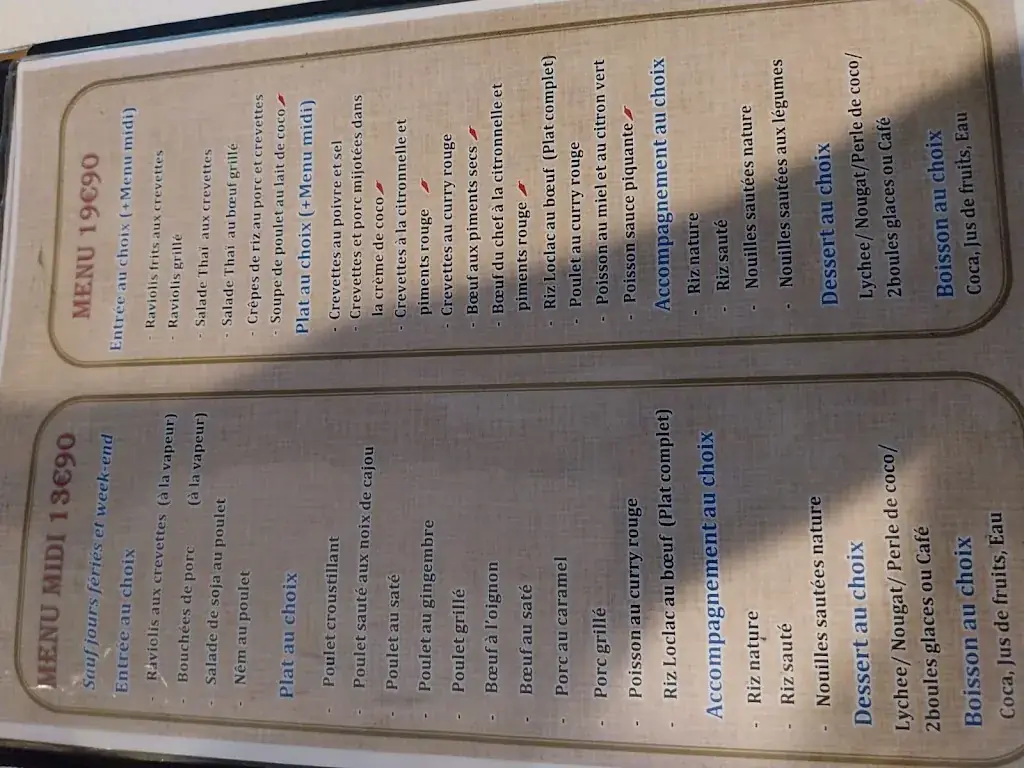 MENU MIDI 13€90
Sauf jours fériés et week-end
Entrée au choix
- Raviolis aux crevettes (à la vapeur)
- Bouchées de porc (à la vapeur)
- Salade de soja au poulet
- Nêm au poulet
Plat au choix
- Poulet croustillant
- Poulet sauté aux noix de cajou
- Poulet au saté
- Poulet au gingembre
- Poulet grillé
- Bœuf à l'oignon
- Bœuf au saté
- Porc au caramel
- Porc grillé
- Poisson au curry rouge
- Riz Loclac au bœuf (Plat complet)
Accompagnement au choix
- Riz nature
- Riz sauté
- Nouilles sautées nature
Dessert au choix
Lychee/ Nougat/ Perle de coco/
2boules glaces ou Café
Boisson au choix
Coca, Jus de fruits, Eau
MENU 19€90
Entrée au choix (+Menu midi)
- Raviolis frits aux crevettes
- Raviolis grillé
- Salade Thaï aux crevettes
- Salade Thaï au bœuf grillé
- Crêpes de riz au porc et crevettes
- Soupe de poulet au lait de coco
Plat au choix (+Menu midi)
- Crevettes au poivre et sel
- Crevettes et porc mijotées dans
la crème de coco
- Crevettes à la citronnelle et
piments rouge
- Crevettes au curry rouge
- Bœuf aux piments secs
- Bœuf du chef à la citronnelle et
piments rouge
- Riz Loclac au bœuf (Plat complet)
- Poulet au curry rouge
- Poisson au miel et au citron vert
- Poisson sauce piquante
Accompagnement au choix
- Riz nature
- Riz sauté
- Nouilles sautées nature
- Nouilles sautées aux légumes
Dessert au choix
Lychee/ Nougat/Perle de coco/
2boules glaces ou Café
Boisson au choix
Coca, Jus de fruits, Eau